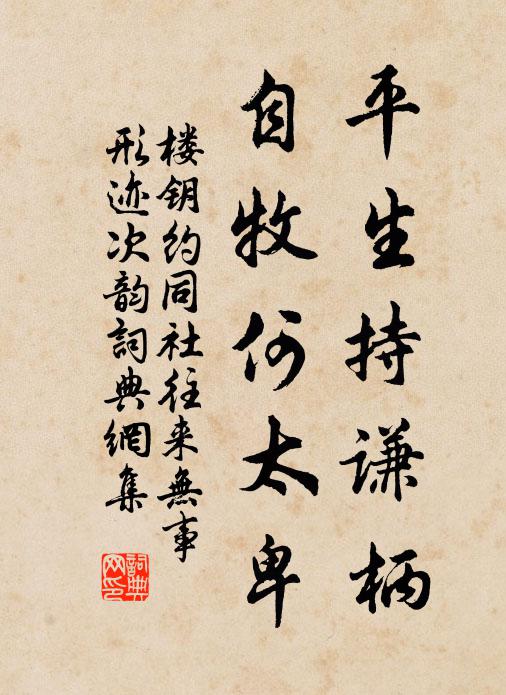 平生持谦柄
自牧何太卑
楼钥约同社往来無事
形迹次韵詞典網集
詞典
网印